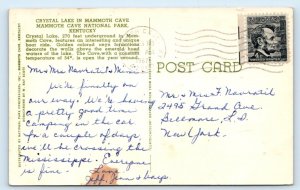 CRYSTAL LAKE IN MAMMOTH CAVE
MAMMOTH CAVE NATIONAL PARK,
KENTUCKY
Crystal Lake, 270 feet underground in Mammoth Cave, features an interesting and unique
boat ride. Golden colored onyx formations
decorate the walls above the emerald hued
waters of the lake. The cave, with a constant
temperature of 54°, is open the year around.
POST CARD
Mrs Mrs Navratil & Mimi
We're finally on
our way. We're having
a pretty good time
camping in the cat
for a couple of days
we'll be crossing the
Mississippi. Everyone
is fine. Love
boys
Mr. & Mrs F Navratil
2495 Grand Ave
Bellmore, L.I.
New York